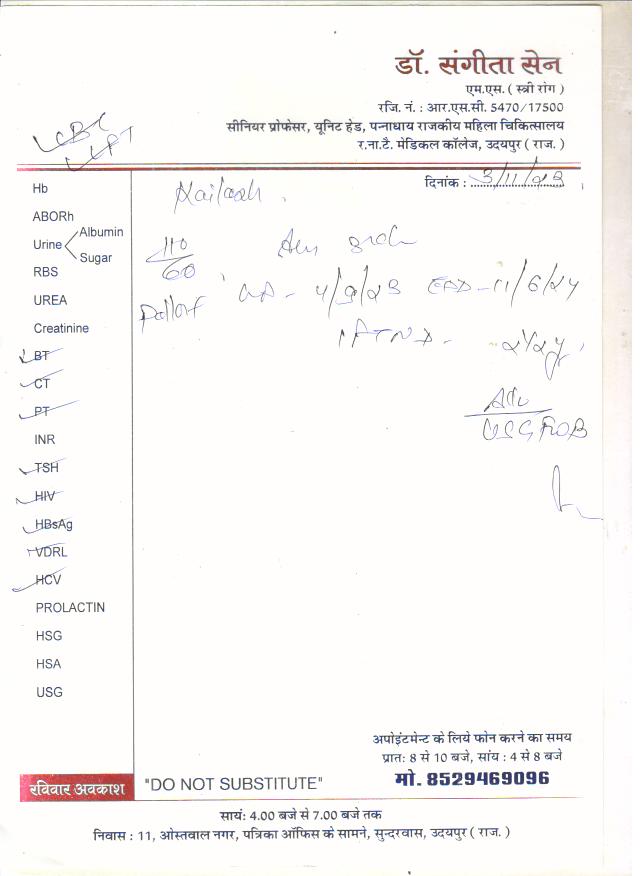 डॉ. संगीता सेन
एम.एस. ( स्त्री रोग )
रजि. नं. : आर.एस.सी. 5470/17500
सीनियर प्रोफेसर, यूनिट हेड, पन्नाधाय राजकीय महिला चिकित्सालय
र.ना.टै. मेडिकल कॉलेज, उदयपुर ( राज. )
दिनांक : 3/11/23
Kailash
Hb
ABORh
Urine
Albumin
Sugar
RBS
UREA
Creatinine
BT
CT
PT
INR
TSH
HIV
HBsAg
VDRL
HCV
PROLACTIN
HSG
HSA
USG
110/60
Pallor
4/9/23 EDD - 11/6/24
Adv
USG
अपोइंटमेन्ट के लिये फोन करने का समय
प्रात: 8 से 10 बजे, सांय : 4 से 8 बजे
मो. 8529469096
रविवार अवकाश
"DO NOT SUBSTITUTE"
सायं: 4.00 बजे से 7.00 बजे तक
निवास : 11, ओस्तवाल नगर, पत्रिका ऑफिस के सामने, सुन्दरवास, उदयपुर ( राज. )